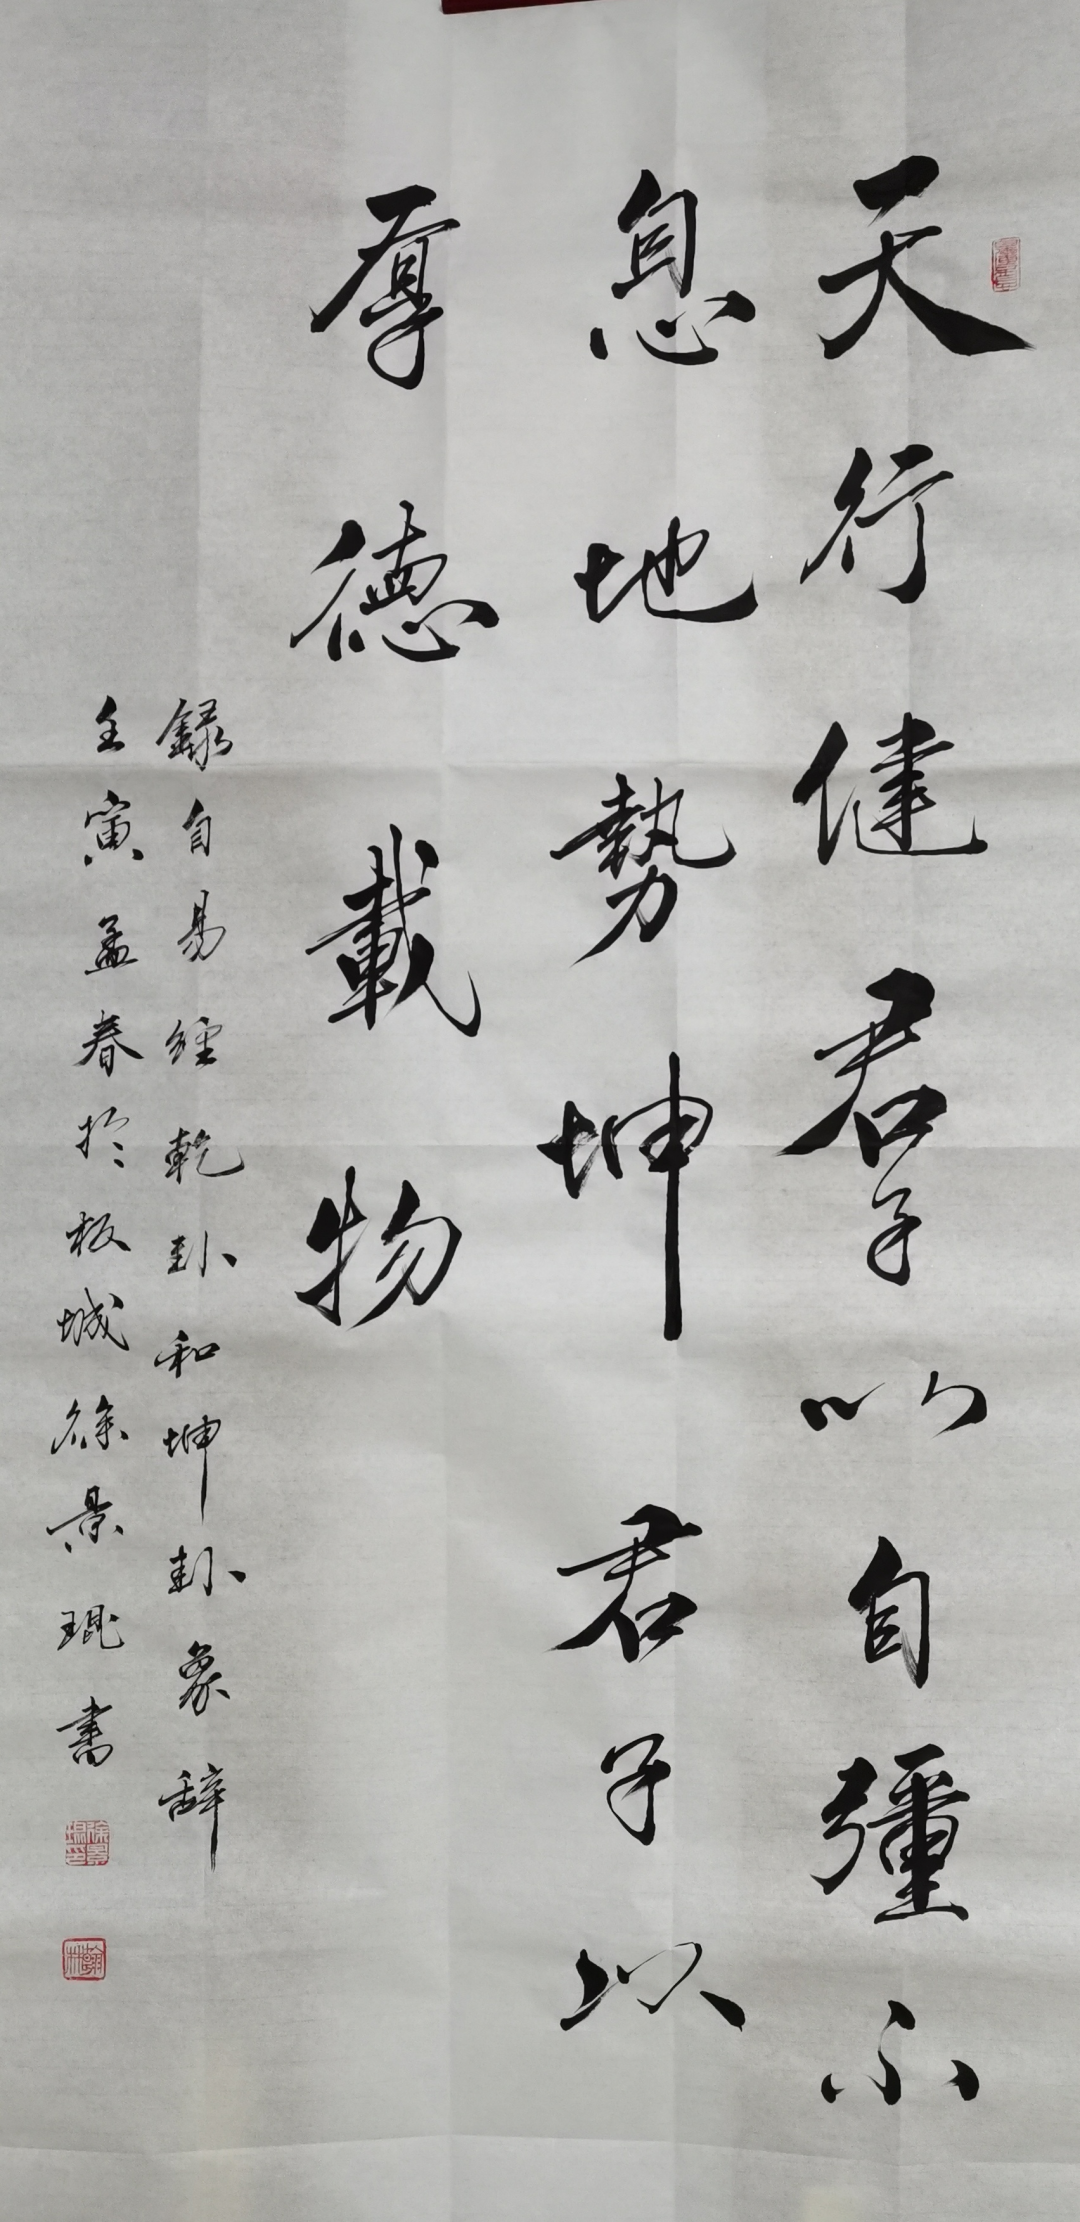 天行健君子以自彊不
息地勢坤君子以
厚德載物
録自易經乾卦和坤卦象辞
壬寅孟春於板城徐景琨書
徐景琨印
翰林